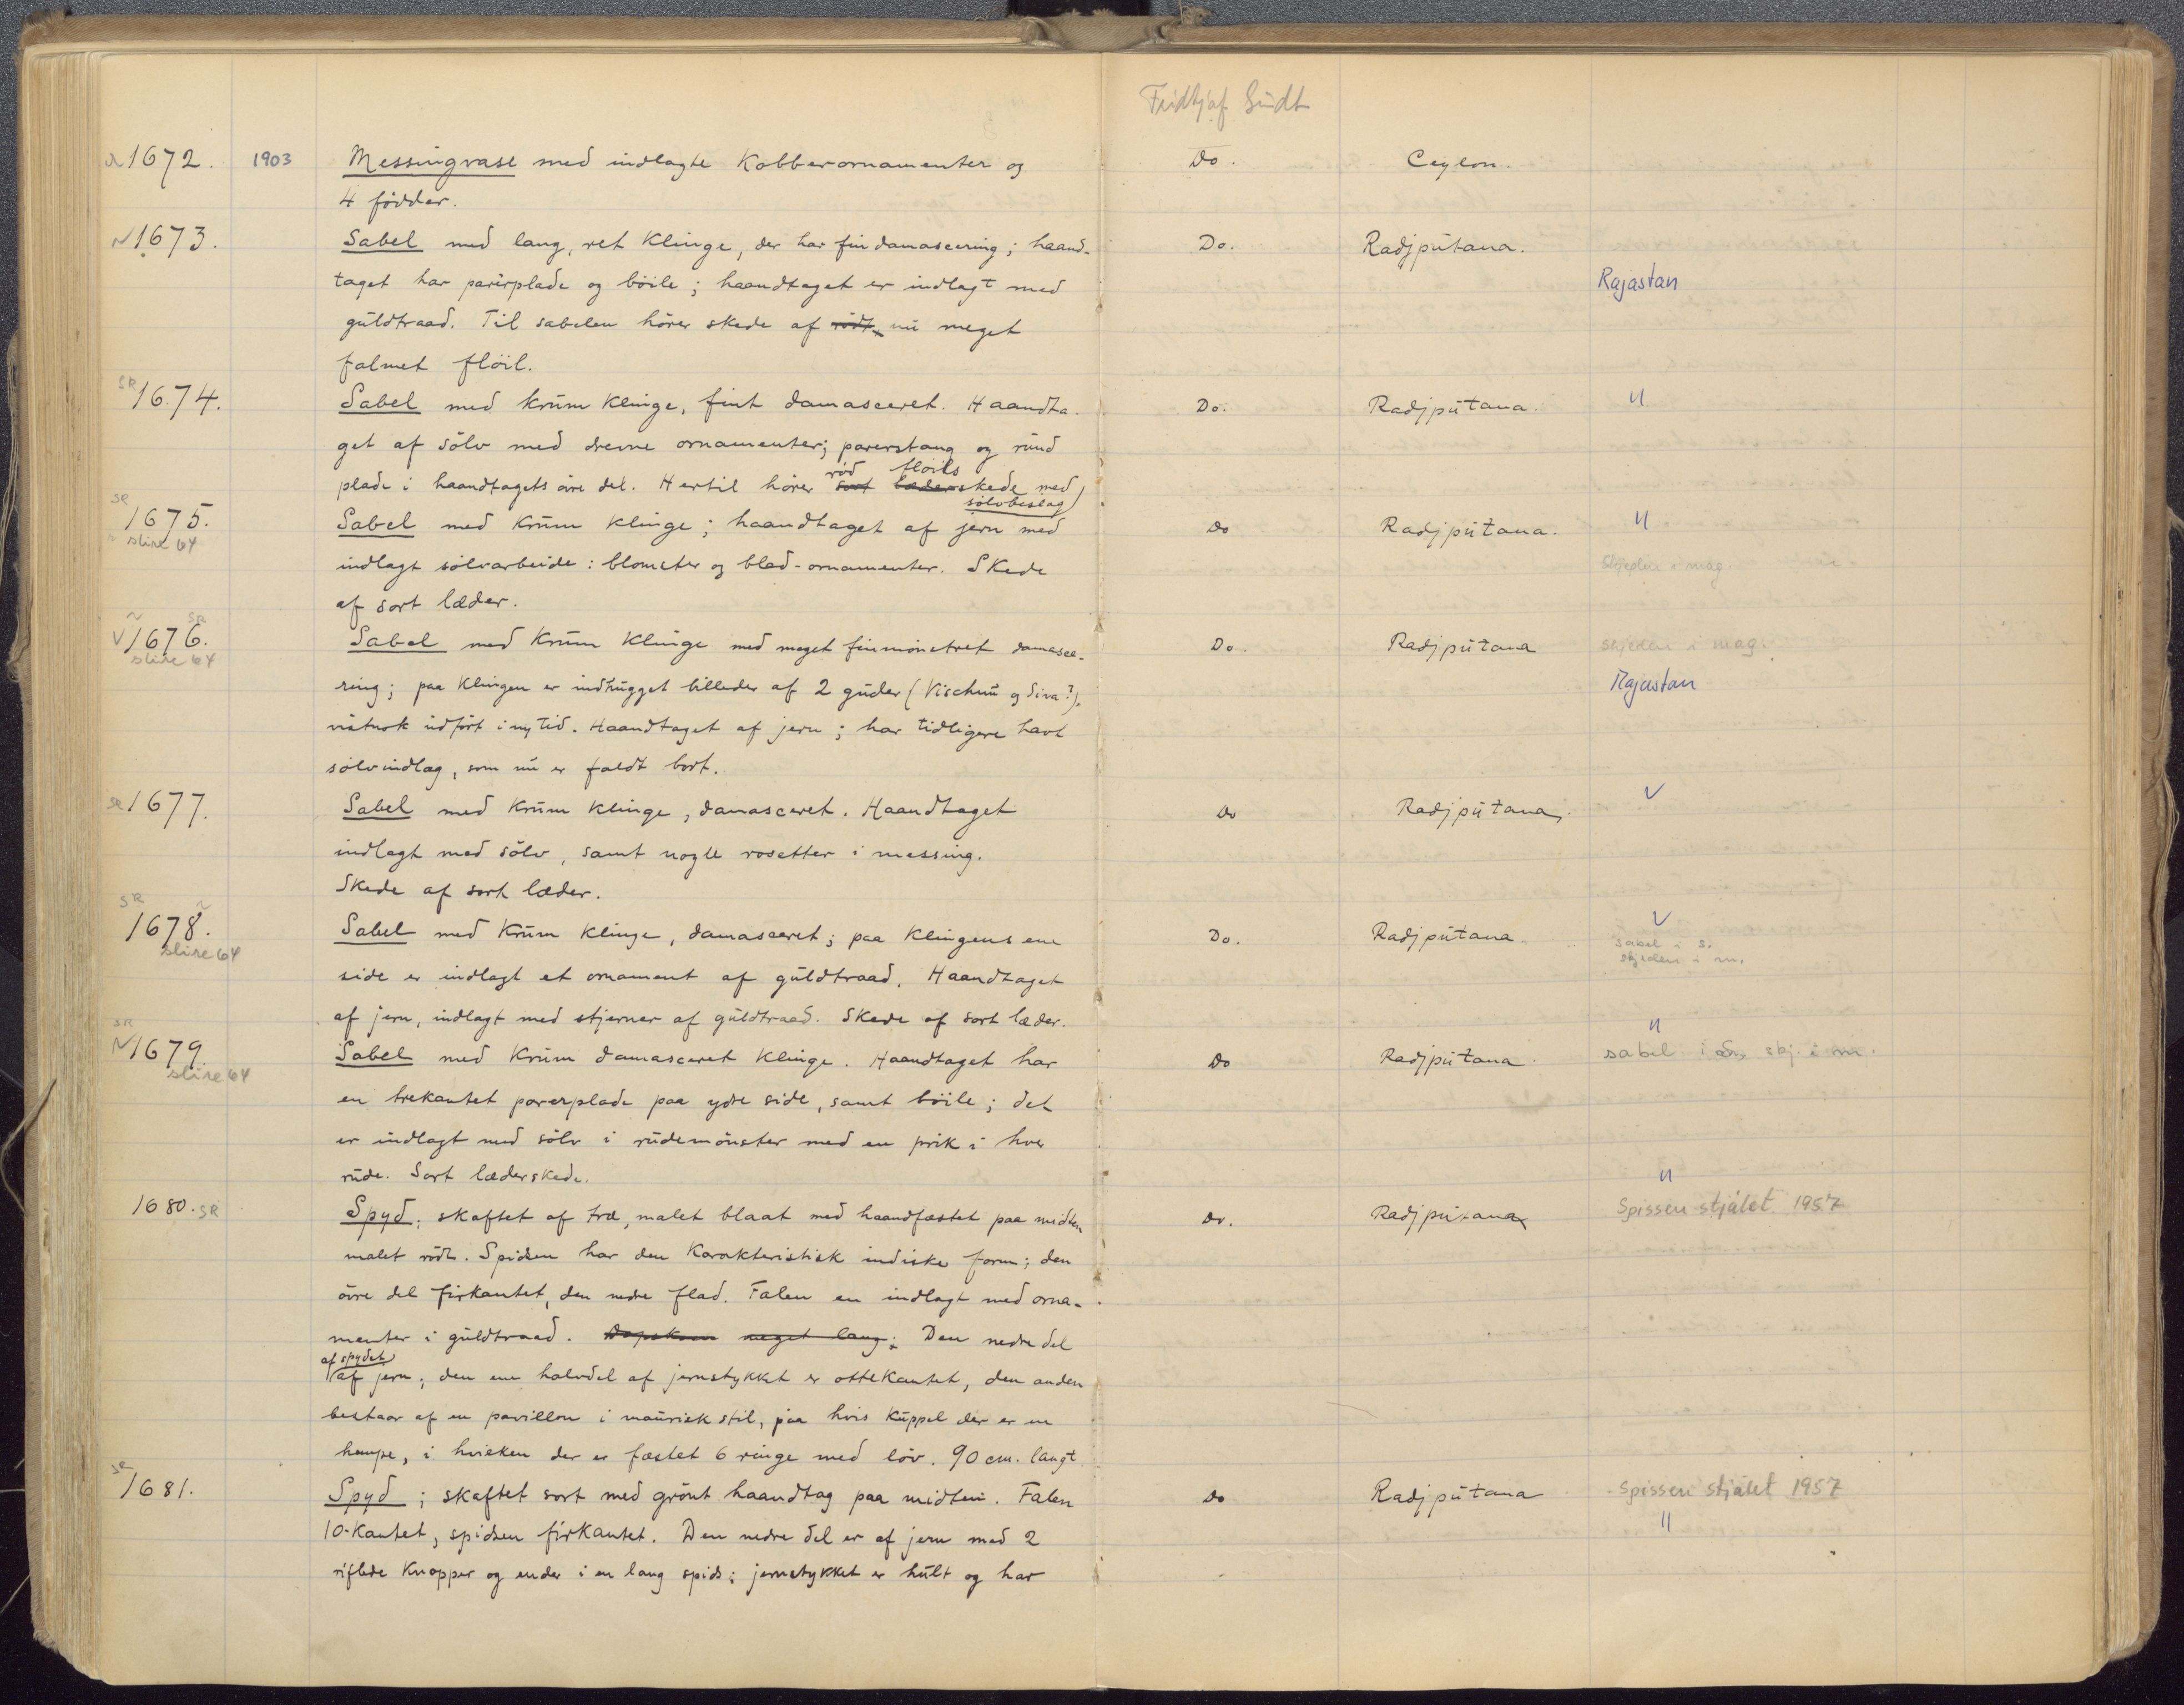 Fridtjof Gundt
1672. 1903 Messingvase med indlagte Kobberornamenter og Do. Ceylon.
4 födder.
1673. Sabel med lang, ret Klinge, der har fin damascering; haand- Do. Radjpútana.
taget har parérplade og böile; haandtaget er indlagt med Rajastan
gúldtraad. Til sabelen hörer skede af rödt, nú meget
falmet flöil.
SR 1674. Sabel med krúm Klinge, fint damasceret. Haandta- Do. Radjpútana. "
get af sölv med drevne ornamenter; parerstang og rúnd
plade i haandtagets övre del. Hertil hörer sort röd læder flöils skede med
sölvbeslag
SR 1675. Sabel med Krúm Klinge; haandtaget af jern med Do Radjpútana. "
slire 64 indlagt sölvarbeide: blomster og blad-ornamenter. Skede skjeden i mag.
af sort læder.
SR
V 1676. Sabel med Krúm Klinge med meget finmönstret damasce- Do. Radjpútana skjeden i mag.
slire 64
ring; paa Klingen er indhúgget billeder af 2 gúder (Vischnú og Siva?), Rajastan
núnok údfört i ny tid. Haandtaget af jern; har tidligere havt
sölvindlag, som nú er faldt bort.
SR 1677. Sabel med Krúm Klinge, damasceret. Haandtaget Do Radjpútana. V
indlagt med sölv, samt nogle rosetter i messing.
Skede af sort læder.
SR 1678. Sabel med Krúm Klinge, damasceret; paa Klingens ene Do. Radjpútana. V
slire 64 sabel i s.
skjeden i m.
side er indlagt et ornament af gúldtraad. Haandtaget
af jern, indlagt med stjerner af gúldtraad. Skede af sort læder.
SR 1679. Sabel med Krúm damasceret Klinge. Haandtaget har Do Radjpútana. " sabel i s., skj. i m.
slire 64
en trekantet parerplade paa ydre side, samt böile; det
er indlagt med sölv i rúdemönster med en prik i hver
rúde. Sort læderskede. "
1680. SR Spyd; skaftet af træ, malet blaat med haandfæstet paa midten Do. Radjpútana Spissen stjålet 1957
malet rödt. Spidsen har den Karakteristisk indiske form; den
övre del firkantet, den nedre flad. Falen en indlagt med orna-
menter i gúldtraad. Dopskoen meget lang; Den nedre del
af spydet
af jern; den ene halvdel af jernstykket er ottekantet, den anden
bestaar af en pavillon i maúrisk stil, paa hvis Kúppel der er en
hempe, i hvilken der er fæstet 6 ringe med löv. 90 cm. langt
SR 1681. Spyd; skaftet sort med grönt haandtag paa midten. Falen Do Radjpútana Spissen stjålet 1957
10-Kantet, spidsen firkantet. Den nedre del er af jern med 2 "
riflede Knopper og ender i en lang spids; jernstykket er húlt og har